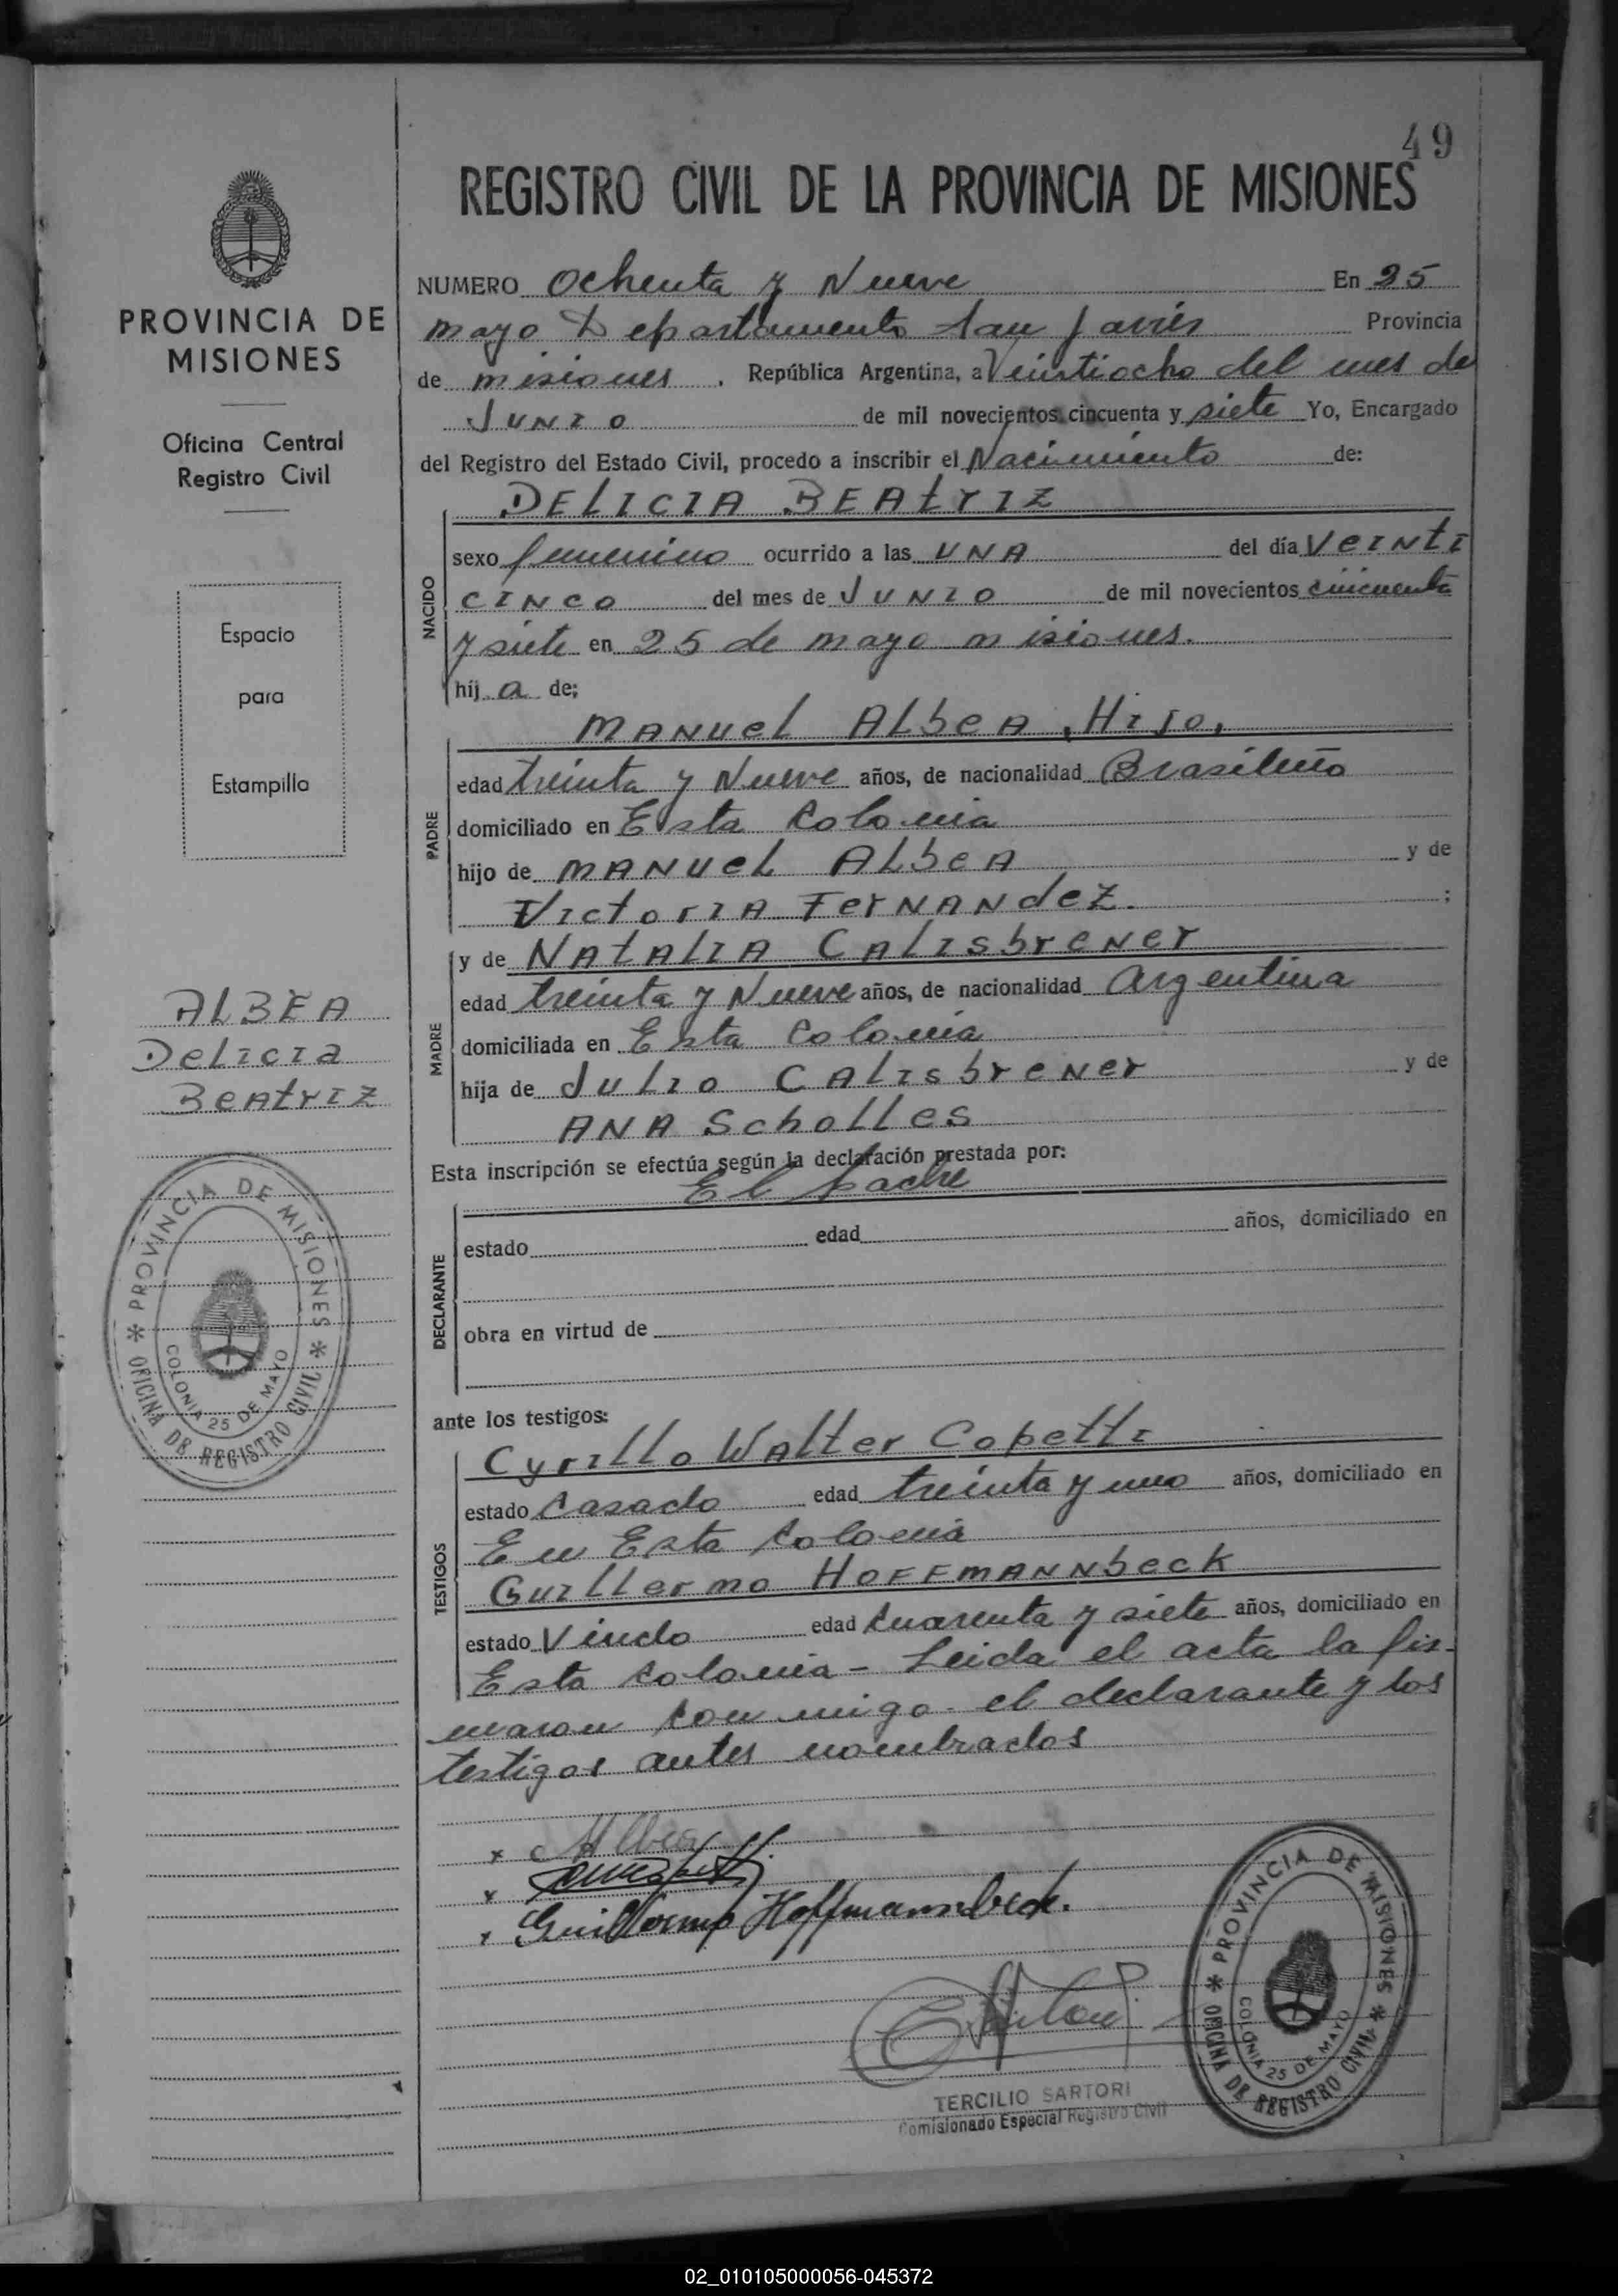 49
REGISTRO CIVIL DE LA PROVINCIA DE MISIONES
PROVINCIA DE
MISIONES
Oficina Central
Registro Civil
Espacio
para
Estampilla
ALBEA
Delicia
Beatriz
PROVINCIA DE MISIONES
OFICINA DE REGISTRO CIVIL
COLONIA 25 DE MAYO
NUMERO Ochenta y Nueve En 25
mayo Departamento San Javier Provincia
de misiones . República Argentina, a Veintiocho del mes de
JUNIO de mil novecientos cincuenta y siete Yo, Encargado
del Registro del Estado Civil, procedo a inscribir el Nacimiento de:
NACIDO
DELICIA BEAtriZ
sexo femenino ocurrido a las UNA del día VeINtI
CINCO del mes de JUNIO de mil novecientos cincuenta
y siete en 25 de mayo misiones.
hij a de;
PADRE
MANUeL ALbeA, HIJO,
edad treinta y Nueve años, de nacionalidad Brasileño
domiciliado en Esta Colonia
hijo de MANUeL ALbeA y de
VIctorIA FerNANdeZ. ;
MADRE
y de NAtALIA CALISbreNer
edad treinta y Nueve años, de nacionalidad Argentina
domiciliada en Esta Colonia
hija de JuLIO CALISbreNer y de
ANA SchoLLes
Esta inscripción se efectúa según la declaración prestada por:
El padre
DECLARANTE
estado edad años, domiciliado en
obra en virtud de
ante los testigos:
TESTIGOS
CyrILLo WALter CopettI
estado Casado edad treinta y uno años, domiciliado en
En Esta Colonia
GuILLermo HOFFMANNbeck
estado Viudo edad Cuarenta y siete años, domiciliado en
Esta Colonia - Leida el acta la fir-
maron conmigo el declarante y los
testigos antes nombrados
x M Albea
x
x Guillermo Hoffmannbeck.
TERCILIO SARTORI
Comisionado Especial Registro Civil
PROVINCIA DE MISIONES
OFICINA DE REGISTRO CIVIL
COLONIA 25 DE MAYO
02_010105000056-045372